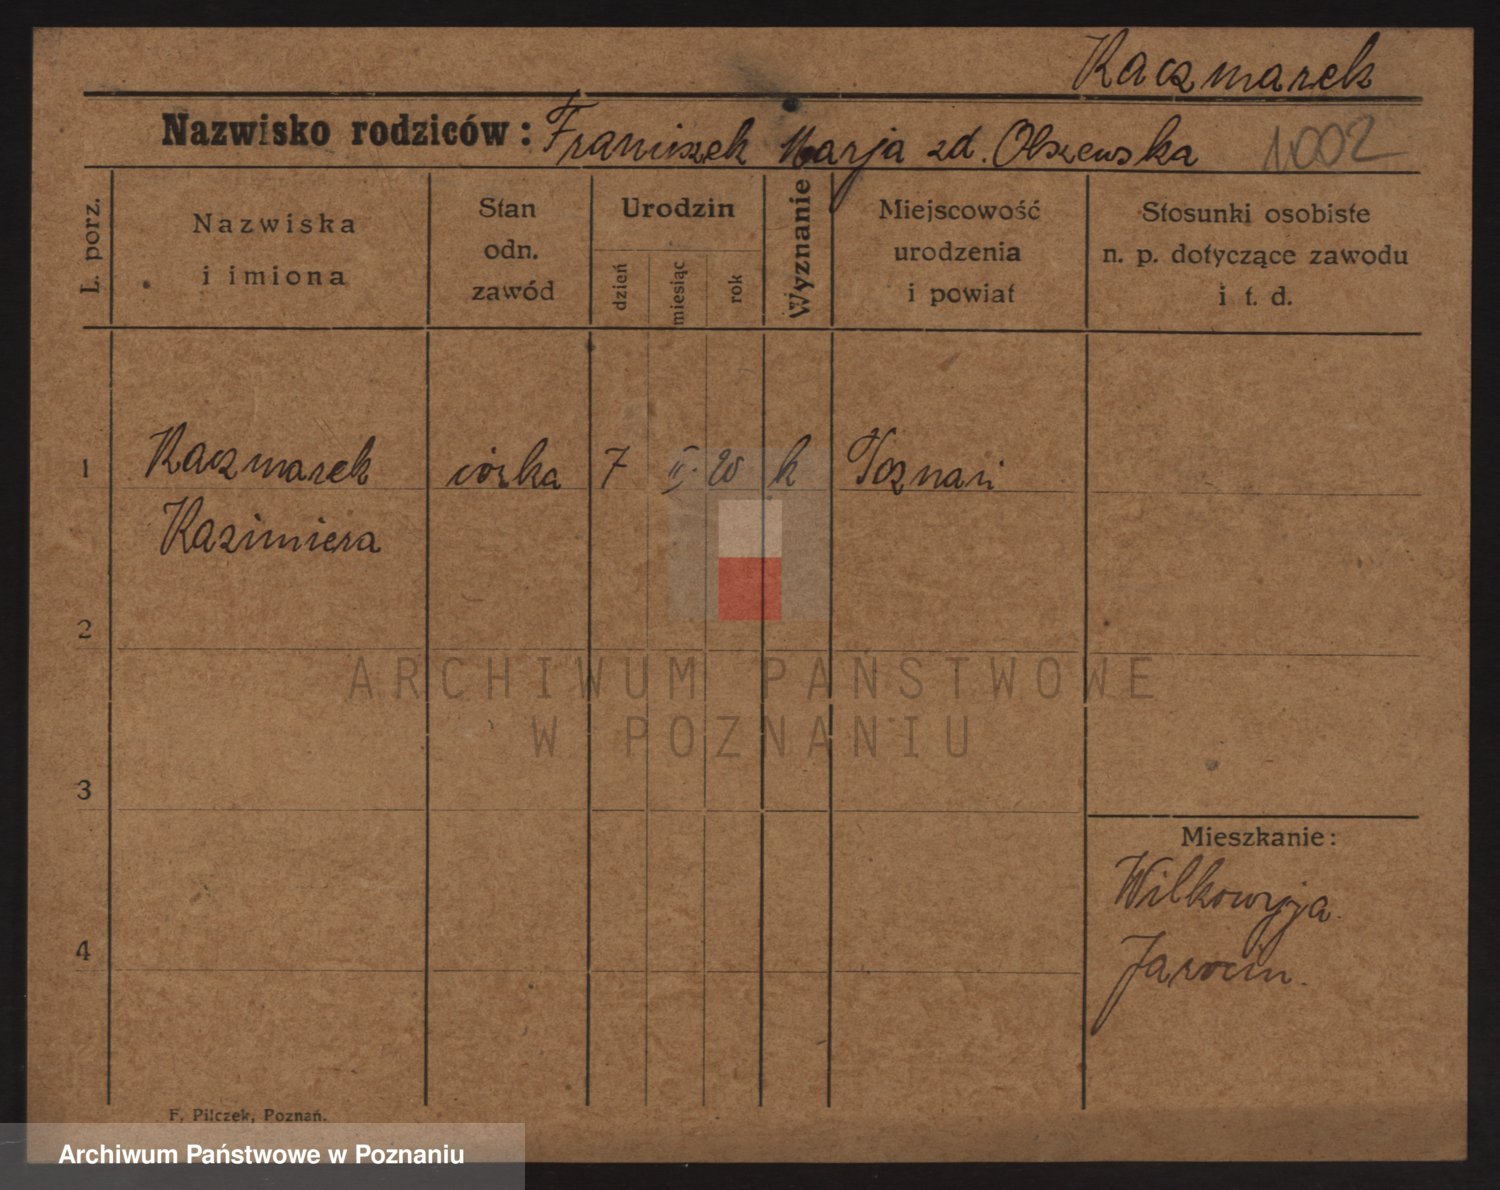 Kaczmarek
Nazwisko rodziców: Franciszek Marja zd. Olszewska 1002
L. porz.
Nazwiska
i imiona
Stan
odn.
zawód
Urodzin
dzień
miesiąc
rok
Wyznanie
Miejscowość
urodzenia
i powiat
Stosunki osobiste
n. p. dotyczące zawodu
i t. d.
1 Kaczmarek córka 7 II. 20 k Poznań
Kazimiera
2
3
4
Mieszkanie:
Wilkowyja
Jarocin.
F. Pilczek, Poznań.
ARCHIWUM PAŃSTWOWE
W POZNANIU
Archiwum Państwowe w Poznaniu